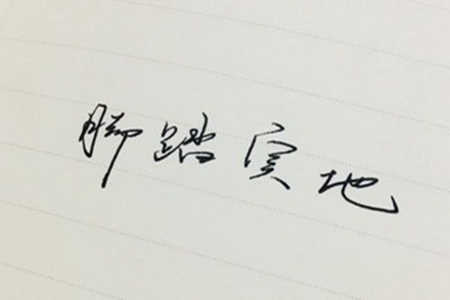 脚踏实地